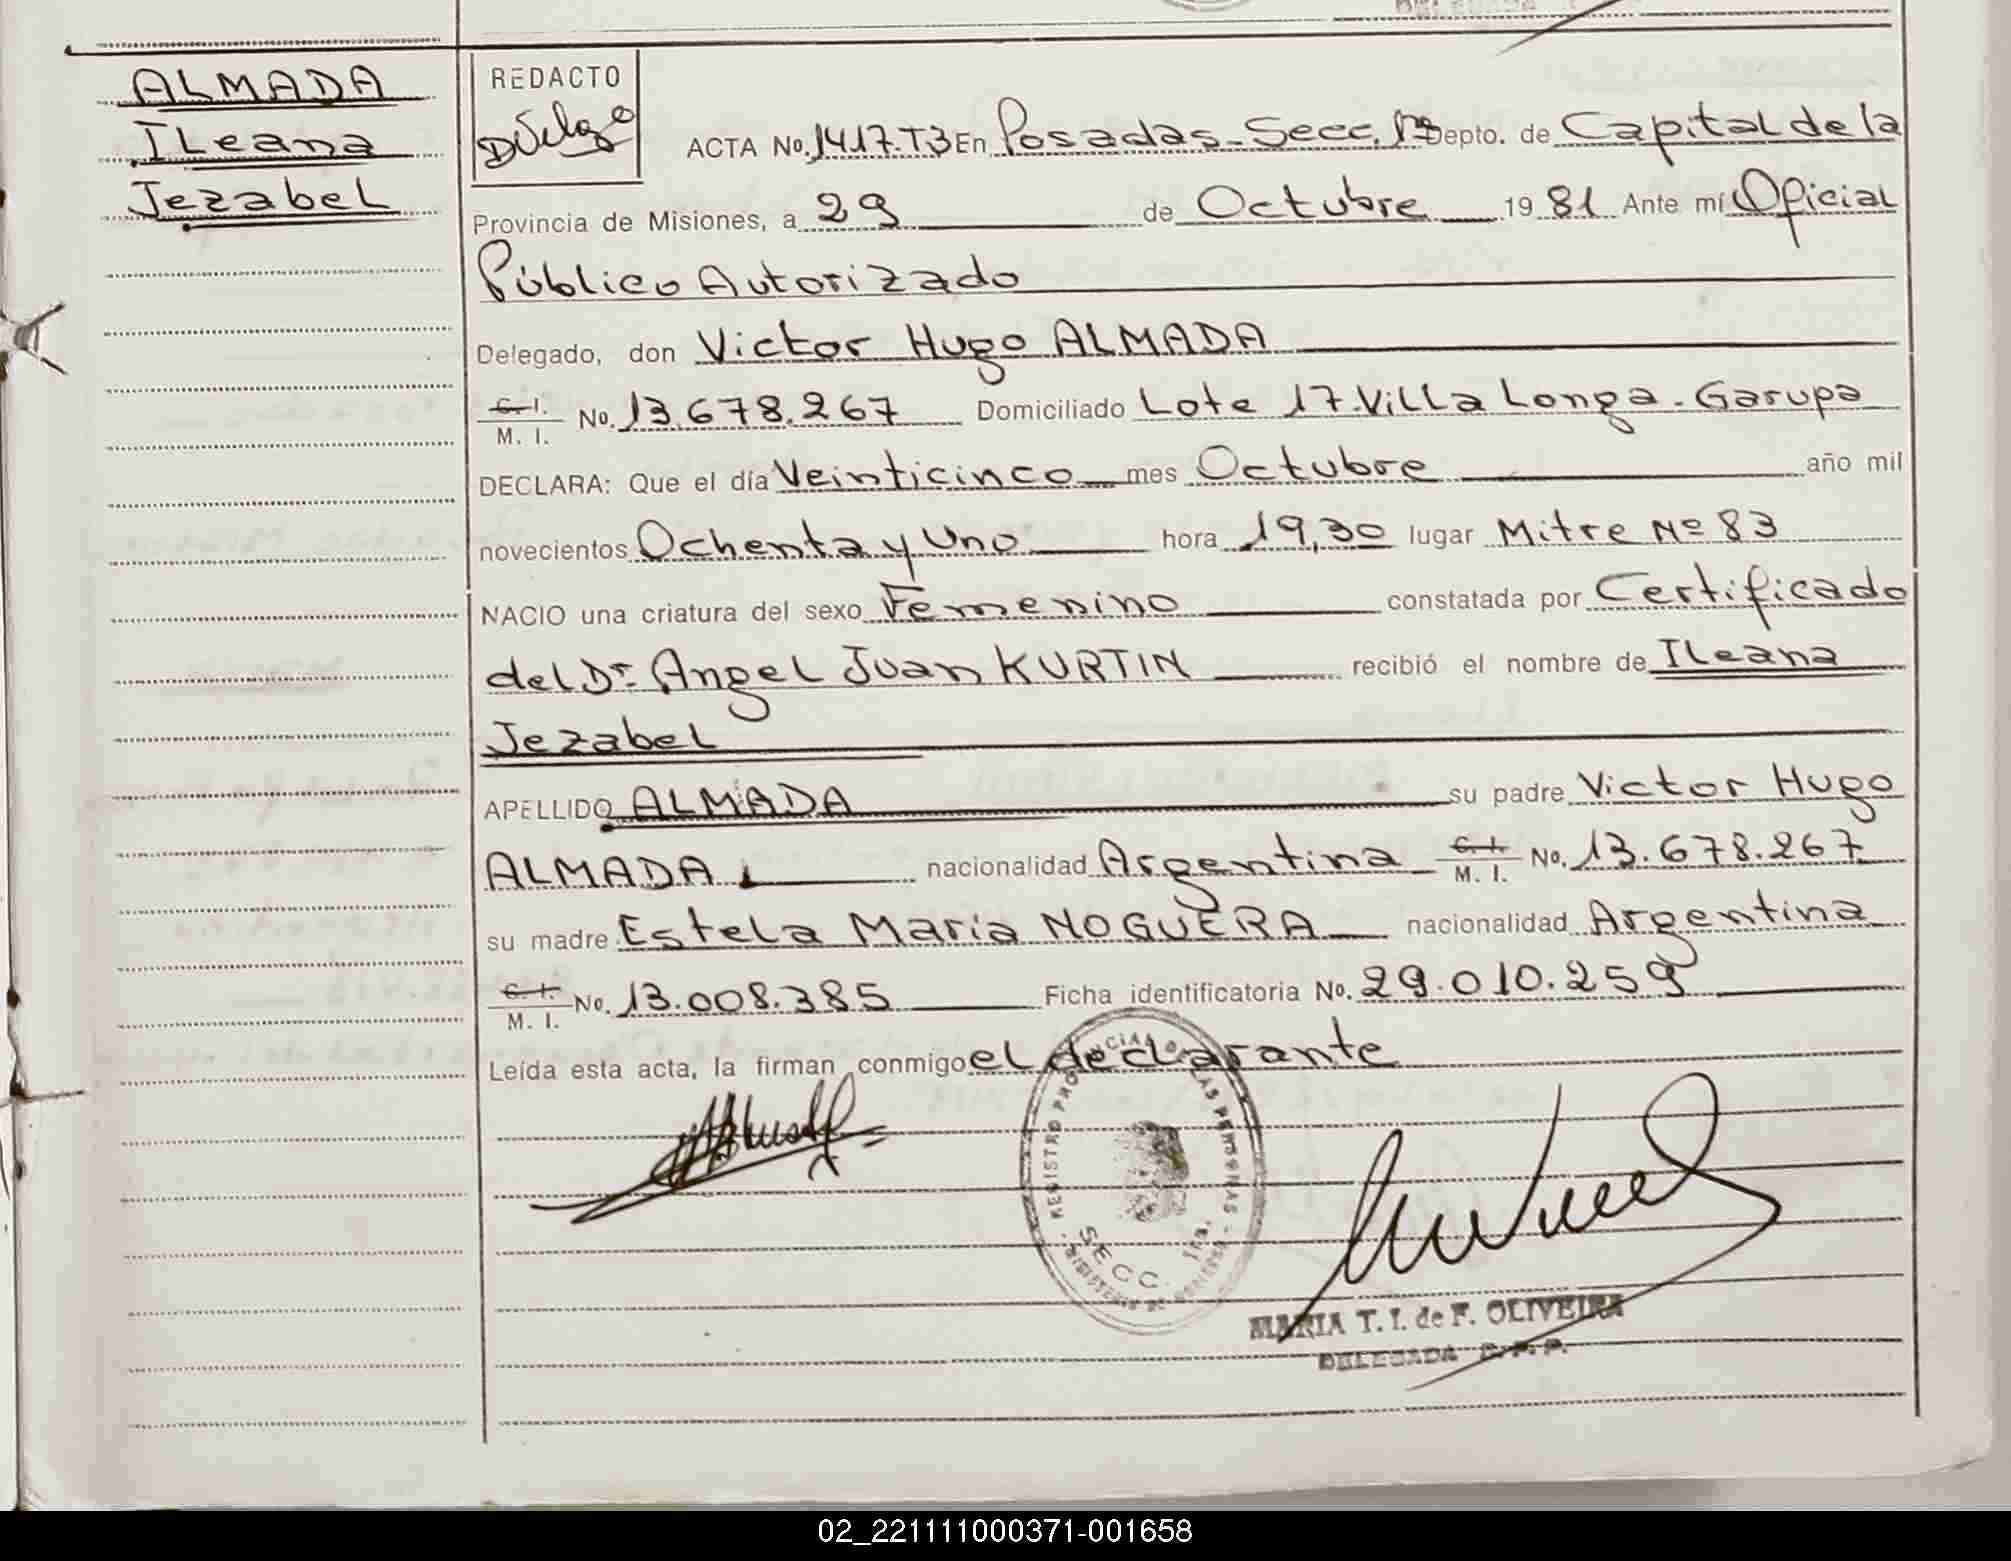 ALMADA
ILeana
Jezabel
REDACTO
ACTA No. 1417.T3 En Posadas-Secc. 1ra Depto. de Capital de la
Provincia de Misiones, a 29 de Octubre 19 81 Ante mí Oficial
Público Autorizado
Delegado, don Victor Hugo ALMADA
C. I.
M. I. No. 13.678.267 Domiciliado Lote 17.Villa Longa-Garupa
DECLARA: Que el día Veinticinco mes Octubre año mil
novecientos Ochenta y Uno hora 19,30 lugar Mitre Nº 83
NACIO una criatura del sexo Femenino constatada por Certificado
del Dr. Angel Juan KURTIN recibió el nombre de ILeana
Jezabel
APELLIDO ALMADA su padre Victor Hugo
ALMADA nacionalidad Argentina C. I.
M. I. No. 13.678.267
su madre Estela Maria NOGUERA nacionalidad Argentina
C. I.
M. I. No. 13.008.385 Ficha identificatoria No. 29.010.259
Leída esta acta, la firman conmigo el declarante
REGISTRO PROVINCIAL DE LAS PERSONAS
SECC. 1ra.
MINISTERIO DE GOBIERNO
MARIA T. I. de F. OLIVEIRA
DELEGADA R. P. P.
02_221111000371-001658